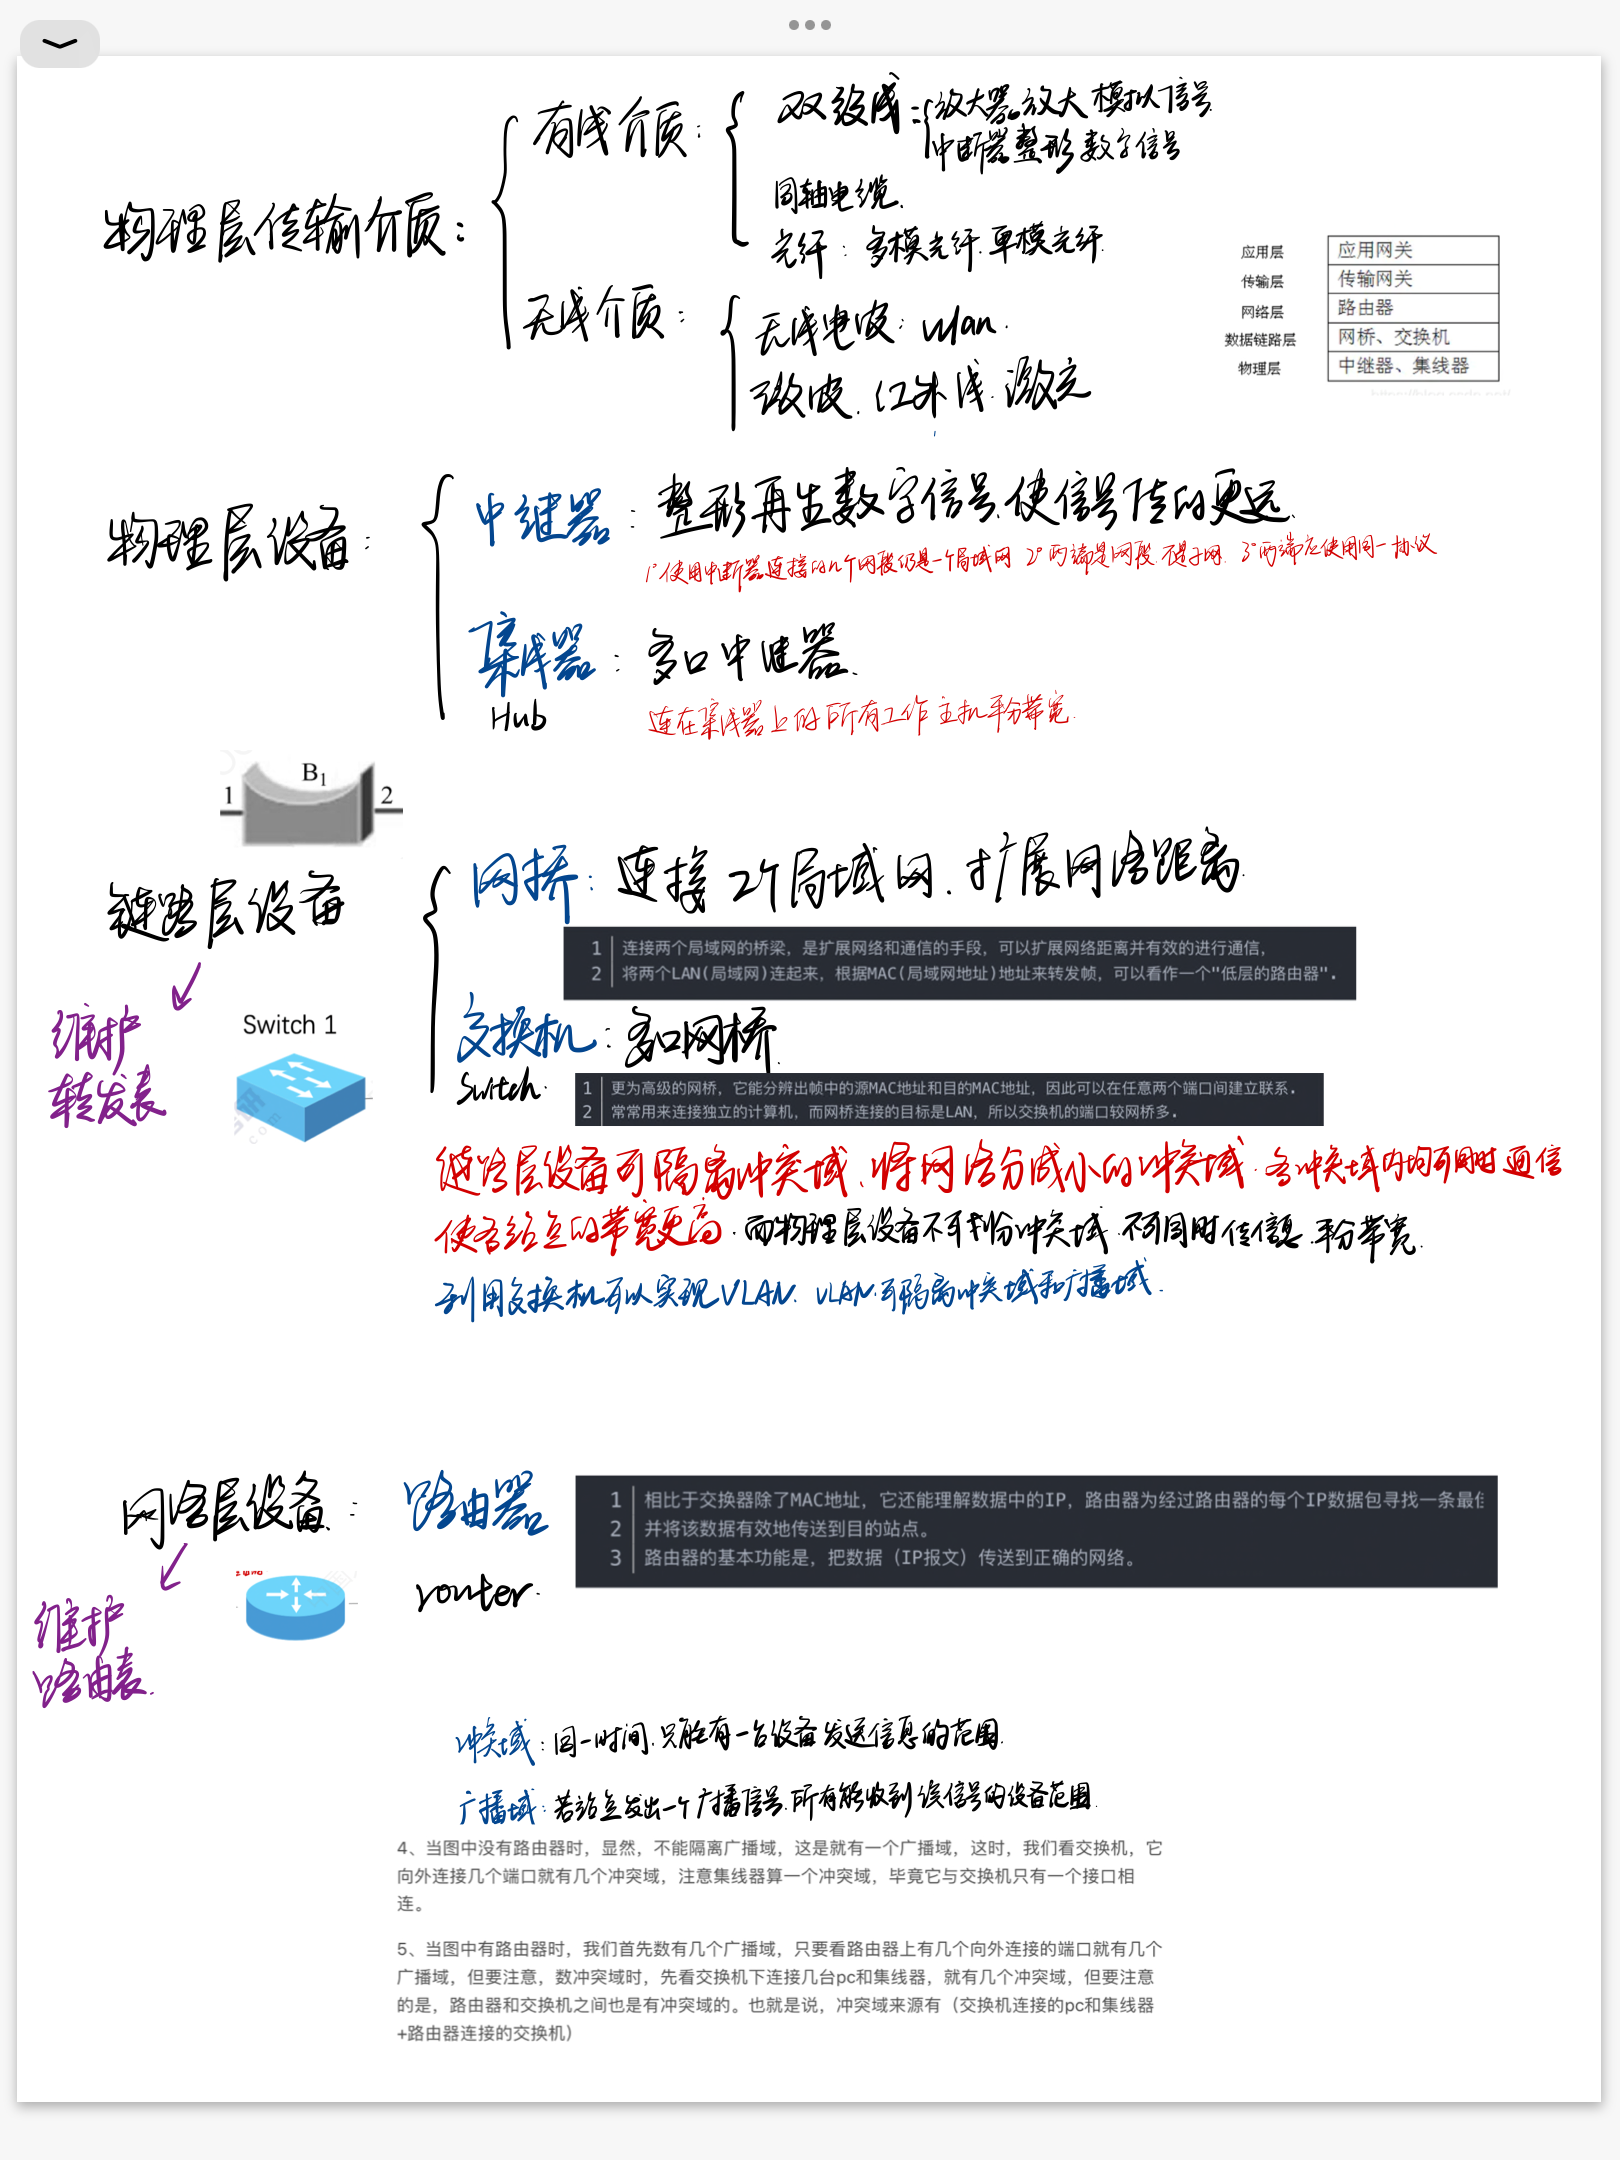 物理层传输介质：
有线介质：
双绞线：放大器。放大模拟信号.
中断器整形数字信号
同轴电缆.
光纤：多模光纤.单模光纤.
无线介质：
无线电波：wlan.
微波.红外线.激光
应用层 应用网关
传输层 传输网关
网络层 路由器
数据链路层 网桥、交换机
物理层 中继器、集线器
物理层设备：
中继器：整形再生数字信号.使信号传的更远.
1° 使用中断器连接的几个网段仍是一个局域网 2° 两端是网段.不是子网. 3° 两端应使用同一协议
集线器：多口中继器.
Hub
连在集线器上的所有工作主机平分带宽.
B1
1 2
链路层设备
维护
转发表
网桥：连接2个局域网.扩展网络距离.
1 连接两个局域网的桥梁，是扩展网络和通信的手段，可以扩展网络距离并有效的进行通信，
2 将两个LAN(局域网)连起来，根据MAC(局域网地址)地址来转发帧，可以看作一个"低层的路由器".
Switch 1
交换机：多口网桥.
Switch.
1 更为高级的网桥，它能分辨出帧中的源MAC地址和目的MAC地址，因此可以在任意两个端口间建立联系.
2 常常用来连接独立的计算机，而网桥连接的目标是LAN，所以交换机的端口较网桥多.
链路层设备可隔离冲突域.将网络分成小的冲突域.各冲突域内均可同时通信
使各结点的带宽更高.而物理层设备不可划分冲突域.不可同时传信息.平分带宽.
利用交换机可以实现VLAN. VLAN可隔离冲突域和广播域.
网络层设备：
路由器
router.
1 相比于交换器除了MAC地址，它还能理解数据中的IP，路由器为经过路由器的每个IP数据包寻找一条最
2 并将该数据有效地传送到目的站点。
3 路由器的基本功能是，把数据（IP报文）传送到正确的网络。
维护
路由表.
冲突域：同一时间.只能有一台设备发送信息的范围.
广播域：若站点发出一个广播信号.所有能收到该信号的设备范围.
4、当图中没有路由器时，显然，不能隔离广播域，这是就有一个广播域，这时，我们看交换机，它
向外连接几个端口就有几个冲突域，注意集线器算一个冲突域，毕竟它与交换机只有一个接口相
连。
5、当图中有路由器时，我们首先数有几个广播域，只要看路由器上有几个向外连接的端口就有几个
广播域，但要注意，数冲突域时，先看交换机下连接几台pc和集线器，就有几个冲突域，但要注意
的是，路由器和交换机之间也是有冲突域的。也就是说，冲突域来源有（交换机连接的pc和集线器
+路由器连接的交换机）